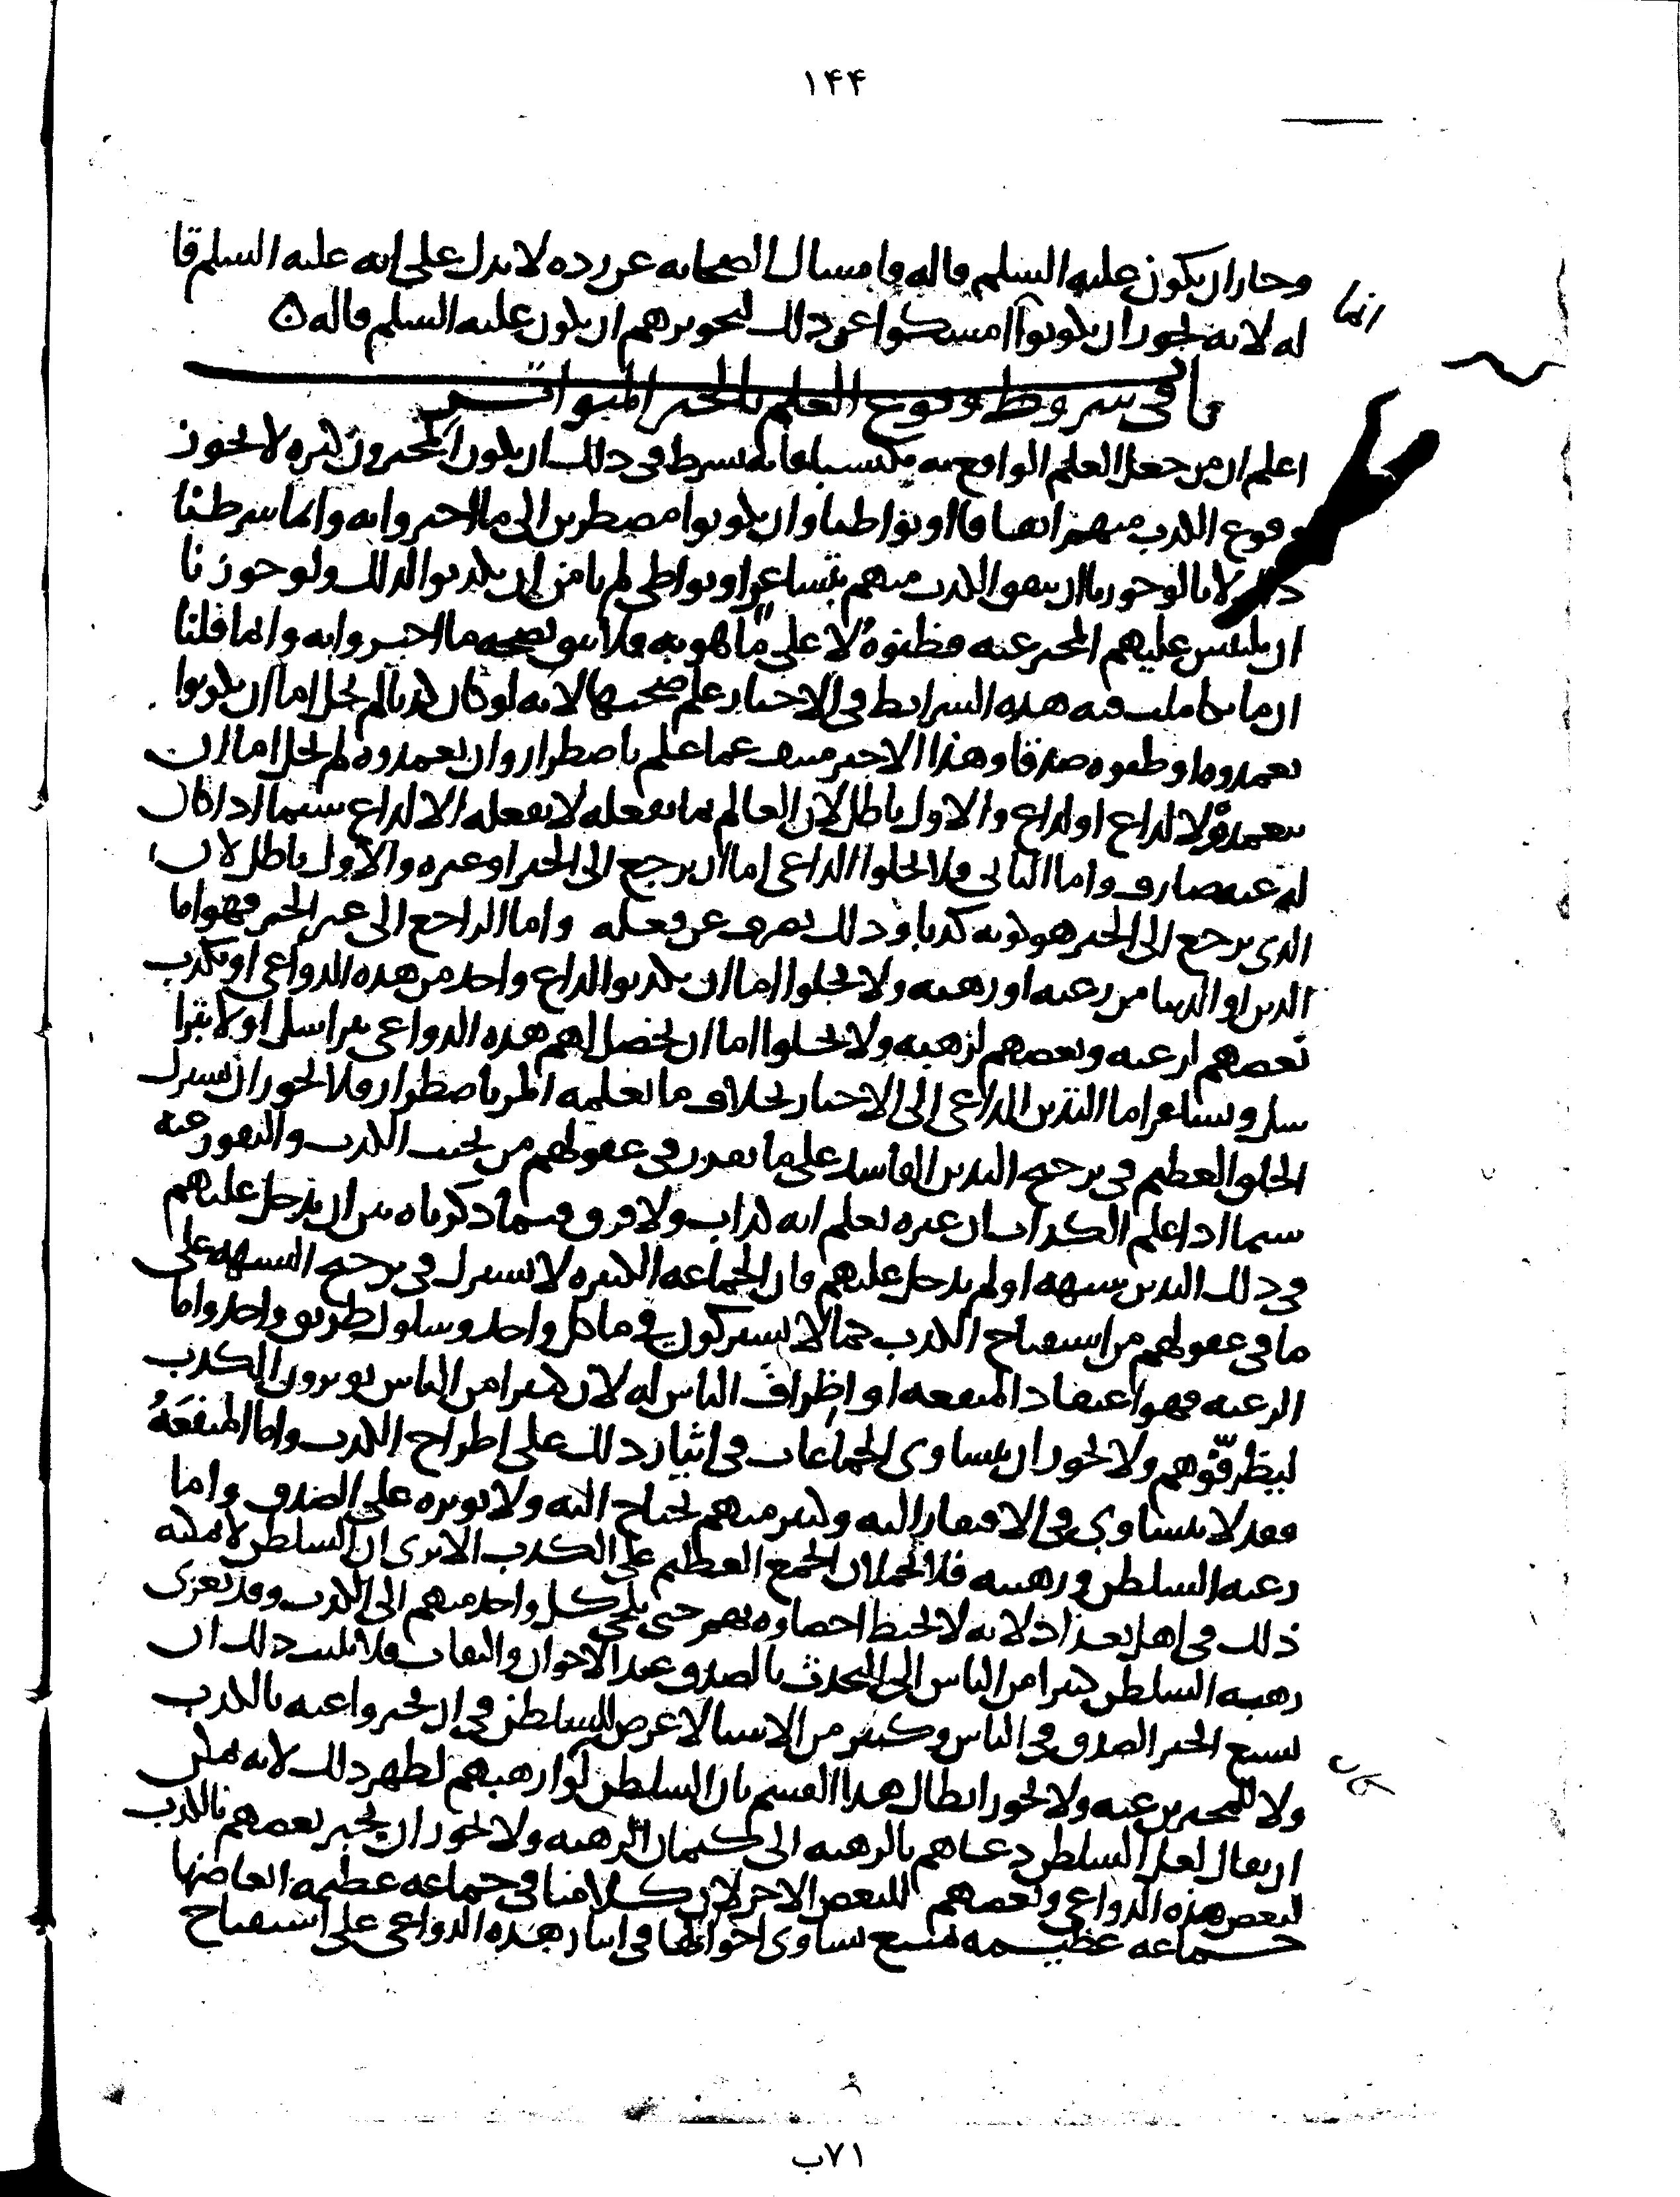 ١۴۴
وجاز ان يكون عليه السلم قاله وامساك الصحابه عن رده لا يدل على انه عليه السلم قا
له لانه يجوز ان يكونوا امسكوا عن ذلك لتجويزهم ان يكون عليه السلم قاله ٥
انما
باب في شروط وقوع العلم بالخبر المتواتر
اعلم ان من جعل العلم الواقع به مكتسبا فانه يشرط في ذلك ان يكون المخبرون كثره لا يجوز
وقوع الكذب منهم اتفاقا او تواطئا وان يكونوا مضطرين الى ما اخبروا به وانما شرطنا
ذلك لانا لو جوزنا ان يتفق الكذب منهم بتشاعر او تواطى لم نامن ان يكونوا كذلك ولو جوزنا
ان يلتبس عليهم المخبر عنه فظنوه لا على ما هو به فلا نثق بصحه ما اخبروا به وانما قلنا
ان ما تكاملت فيه هذه الشرايط في الاخبار علم صحتها لانه لو كان كذبا لم يخل اما ان يكونوا
تعمدوه او ظنوه صدقا وهذا الاخير منتف عما علم باضطرار وان تعمدوه لم يخل اما ان
يتعمدوه لا لداع او لداع والاول باطل لان العالم بما يفعله لا يفعله الا لداع سيما اذا كان
له عنه صارف واما الثاني فلا يخلوا الداعي اما ان يرجع الى الخبر او غيره والاول باطل لان
الذي يرجع الى الخبر هو كونه كذبا وذلك يصرف عن فعله واما الراجع الى غير الخبر فهو اما
الدين او الدنيا من رغبه او رهبه ولا يخلوا اما ان يكذبوا لداع واحد من هذه الدواعي او يكذب
بعضهم لرغبه وبعضهم لرهبه ولا يخلوا اما ان يحصل لهم هذه الدواعي بتراسل او لا بترا
سل وتشاعر اما التدين الداعي الى الاخبار بخلاف ما نعلمه المر باضطرار فلا يجوز ان يشترك
الخلق العظيم في ترجيح التدين الفاسد على ما تقرر في عقولهم من تجنب الكذب والنفور عنه
سيما اذا علم الكذاب ان غيره يعلم انه كذاب ولا فرق فيما ذكرناه بين ان يدخل عليهم
في ذلك التدين شبهه او لم يدخل عليهم فان الجماعه الكثيره لا تشترك في ترجيح الشبهه على
ما في عقولهم من استقباح الكذب كما لا يشتركون في ماكل واحد وسلوك طريق واحد واما
الرغبه فهو اعتقاد المنفعه او اظراف الناس له لان كثيرا من الناس يوثرون الكذب
ليظرفوهم ولا يجوز ان يتساوى الجماعات في ايثار ذلك على اطراح الكذب واما المنفعه
فقد لا يتساوى في الافتقار اليه وكثير منهم يحتاج اليه ولا يوثره على الصدق واما
رغبه السلطن ورهبته فلا تحملان الجمع العظيم على الكذب الا ترى ان السلطن لا يمكنه
ذلك في اهل بغداذ لانه لا يحيط احصاوه بهم حتى يلجى كل واحد منهم الى الكذب وقد تغري
رهبه السلطن كثيرا من الناس الى التحدث بالصدق عند الاخوان والثقات فلا يلبث ذلك ان
يشيع الخبر الصدق في الناس وكثير من الاشيا لا غرض للسلطن في ان يخبروا عنه بالكذب
ولا للمخبرين عنه ولا يجوز ابطال هذا القسم بان السلطن لو ارهبهم لظهر ذلك لانه يمكن
كان
ان يقال لعل السلطن دعاهم بالرهبه الى كتمان الرهبه ولا يجوز ان يخبر بعضهم بالكذب
لبعض هذه الدواعي وبعضهم للبعض الاخر لان كلامنا في جماعه عظيمه ابعاضها
جماعه عظيمه يمتنع تساوى احوالها في ايثار هذه الدواعي على استقباح
٧١ب